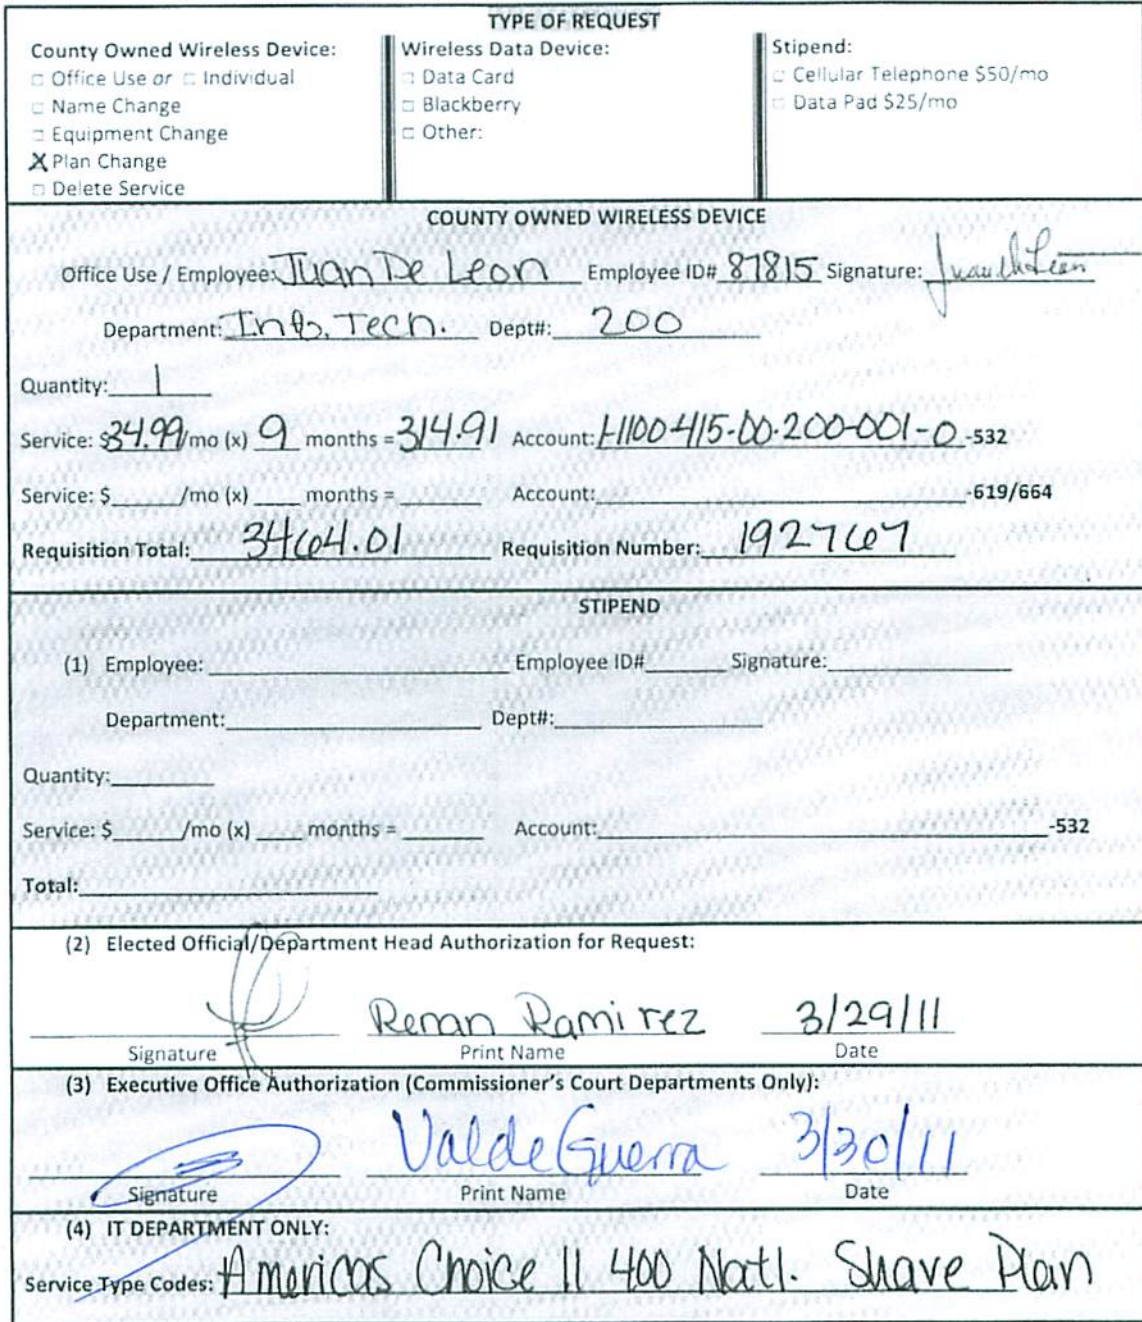 TYPE OF REQUEST
County Owned Wireless Device:
□ Office Use or □ Individual
□ Name Change
□ Equipment Change
X Plan Change
□ Delete Service
Wireless Data Device:
□ Data Card
□ Blackberry
□ Other:
Stipend:
□ Cellular Telephone $50/mo
□ Data Pad $25/mo
COUNTY OWNED WIRELESS DEVICE
Office Use / Employee: Juan De Leon Employee ID# 87815 Signature: Juan De Leon
Department: Info. Tech. Dept#: 200
Quantity: 1
Service: $34.99/mo (x) 9 months = 314.91 Account: 1-1100-415-00-200-001-0-532
Service: $ /mo (x) months = Account: -619/664
Requisition Total: 3464.01 Requisition Number: 192767
STIPEND
(1) Employee: Employee ID# Signature:
Department: Dept#:
Quantity:
Service: $ /mo (x) months = Account: -532
Total:
(2) Elected Official/Department Head Authorization for Request:
Renan Ramirez 3/29/11
Signature Print Name Date
(3) Executive Office Authorization (Commissioner's Court Departments Only):
Valde Guerra 3/30/11
Signature Print Name Date
(4) IT DEPARTMENT ONLY:
Service Type Codes: Americas Choice II 400 Natl. Share Plan